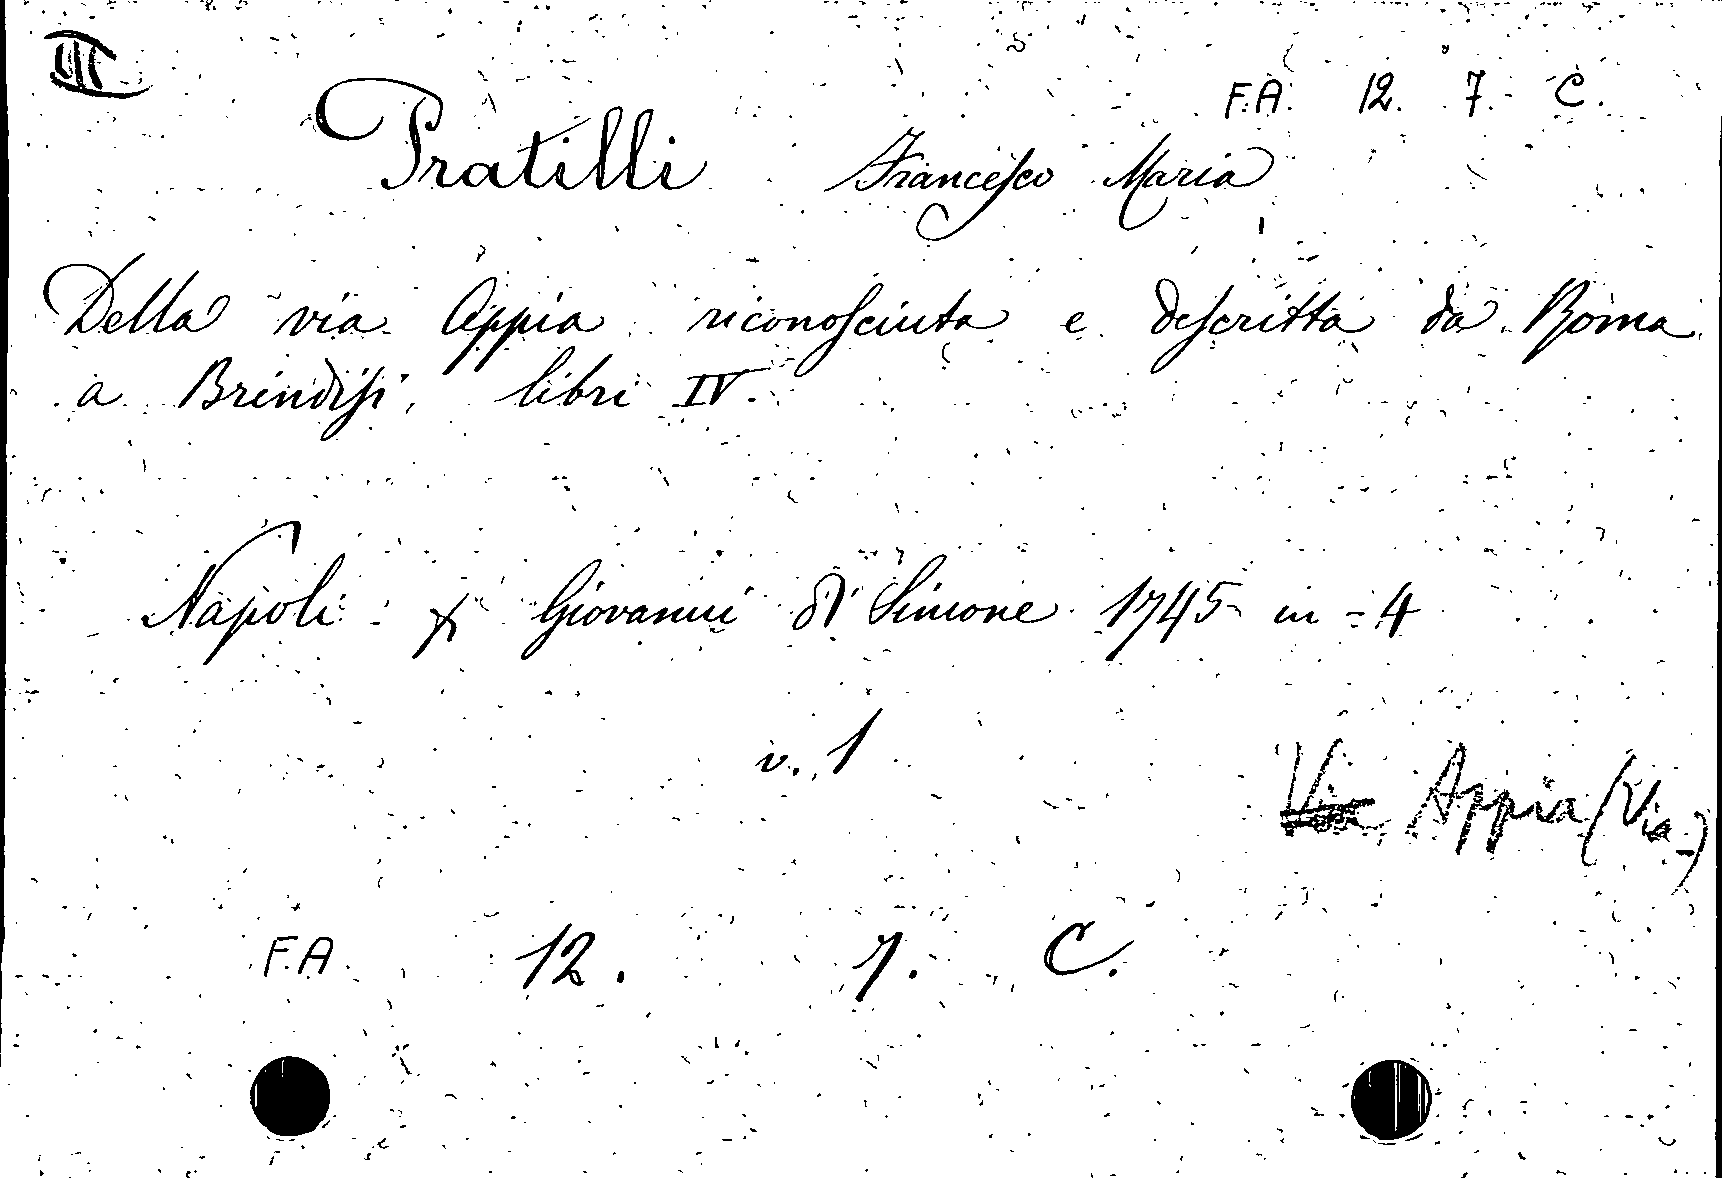 III
F.A. 12. 7. C.
Pratilli Francesco Maria
Della via Appia riconosciuta e descritta da Roma
a Brindisi, libri IV.
Napoli: p Giovanni di Simone 1745 in-4
v. 1
Via Appia (Via-)
F.A. 12. 7. C.